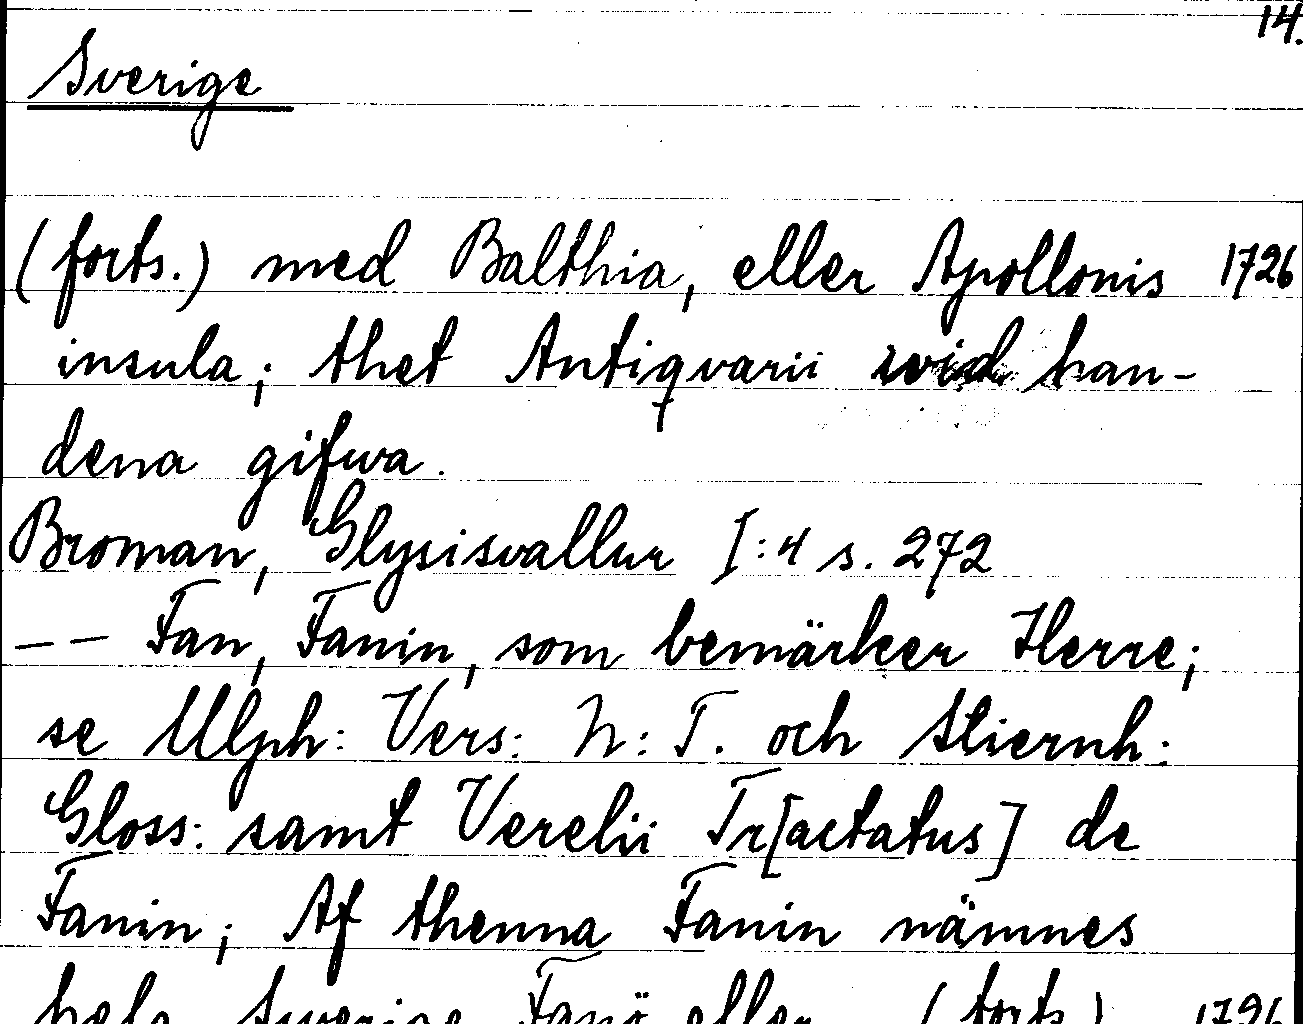 14.
Sverige
(forts.) med Balthia, eller Apollonis 1726
insula; thet Antiqvarii wid han-
dena gifwa.
Broman, Glysisvallur I:4 s. 272
-- Fan, Fanin, som bemärker Herre;
se Ulph: Vers: N: T. och Stiernh:
Gloss: samt Verelii Tr[actatus] de
Fanin; Af thenna Fanin nämnes
hela Swerige Fanö eller (forts.) 1726